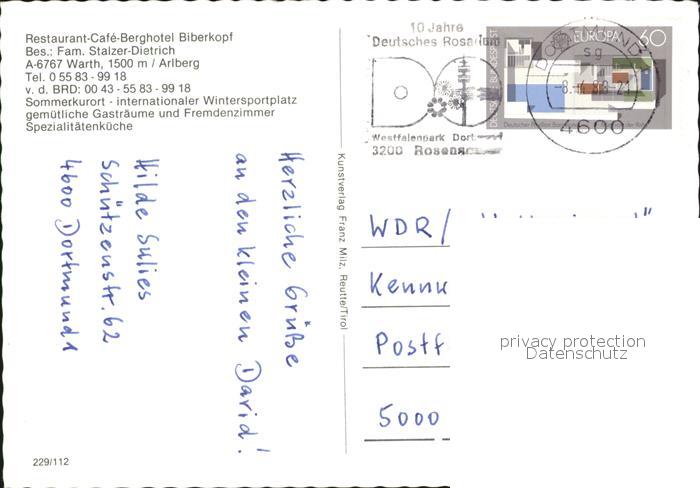 Restaurant-Café-Berghotel Biberkopf
Bes.: Fam. Stalzer-Dietrich
A-6767 Warth, 1500 m / Arlberg
Tel. 0 55 83 - 99 18
v. d. BRD: 00 43 - 55 83 - 99 18
Sommerkurort - internationaler Wintersportplatz
gemütliche Gasträume und Fremdenzimmer
Spezialitätenküche
Herzliche Grüße
an den kleinen David!
Hilde Sulies
Schützenstr. 62
4600 Dortmund 1
229/112
Kunstverlag Franz Milz, Reutte/Tirol
10 Jahre
Deutsches Rosarium
Westfalenpark Dort
3200 Rosen
DORTMUND
sg
4600
EUROPA 60
DEUTSCHE BUNDESPOST
WDR/
Kennw
Postf
5000
privacy protection
Datenschutz